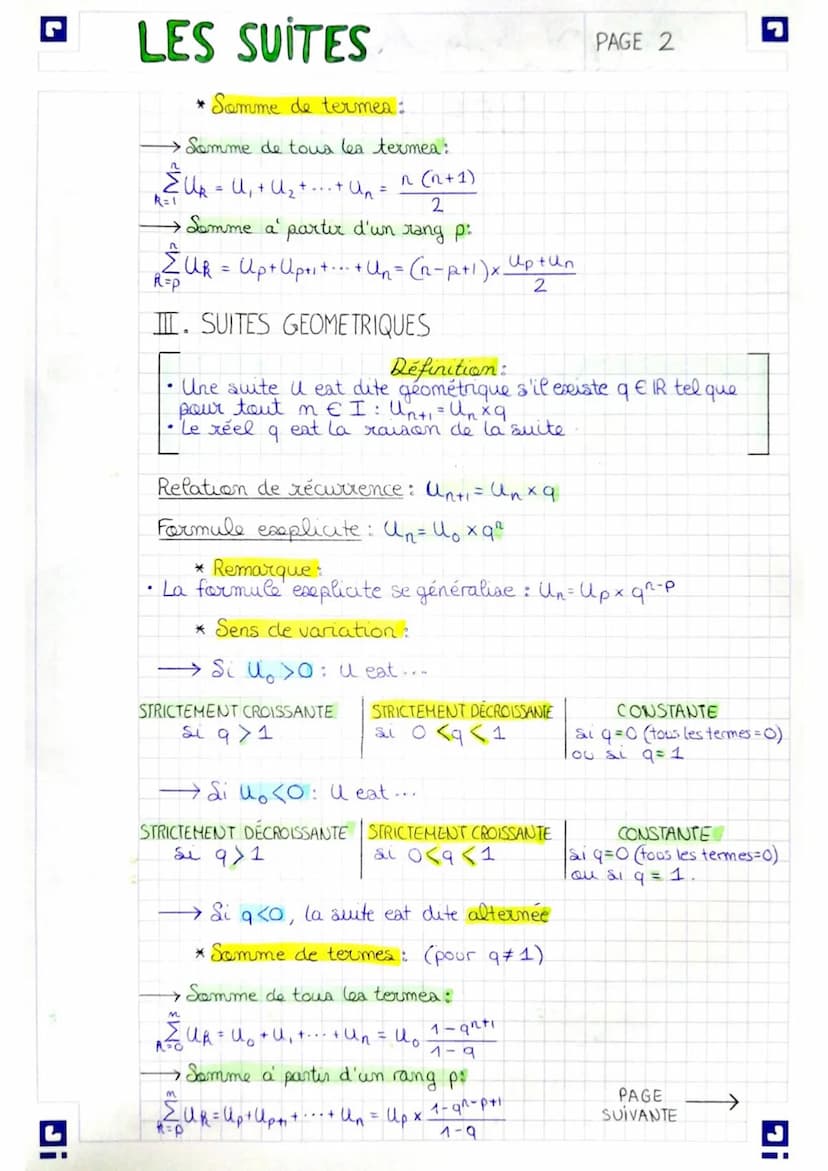 LES SUITES
PAGE 2
* Somme de termes :
→ Somme de tous les termes :
∑_{k=1}^{n} U_k = U_1 + U_2 + ... + U_n = n(n+1)/2
→ Somme à partir d'un rang p :
∑_{k=p}^{n} U_k = U_p + U_{p+1} + ... + U_n = (n-p+1) × (U_p + U_n)/2
III. SUITES GEOMETRIQUES
Définition :
• Une suite U est dite géométrique s'il existe q ∈ IR tel que
pour tout n ∈ I : U_{n+1} = U_n × q
• Le réel q est la raison de la suite
Relation de récurrence : U_{n+1} = U_n × q
Formule explicite : U_n = U_0 × q^n
* Remarque :
• La formule explicite se généralise : U_n = U_p × q^{n-p}
* Sens de variation :
→ Si U_0 > 0 : U est ...
STRICTEMENT CROISSANTE | STRICTEMENT DÉCROISSANTE | CONSTANTE
si q > 1 | si 0 < q < 1 | si q=0 (tous les termes=0)
ou si q = 1
→ Si U_0 < 0 : U est ...
STRICTEMENT DÉCROISSANTE | STRICTEMENT CROISSANTE | CONSTANTE
si q > 1 | si 0 < q < 1 | si q=0 (tous les termes=0)
ou si q = 1.
→ Si q<0, la suite est dite alternée
* Somme de termes : (pour q ≠ 1)
→ Somme de tous les termes :
∑_{k=0}^{n} U_k = U_0 + U_1 + ... + U_n = U_0 (1-q^{n+1})/(1-q)
→ Somme à partir d'un rang p :
∑_{k=p}^{n} U_k = U_p + U_{p+1} + ... + U_n = U_p × (1-q^{n-p+1})/(1-q)
PAGE
SUIVANTE →